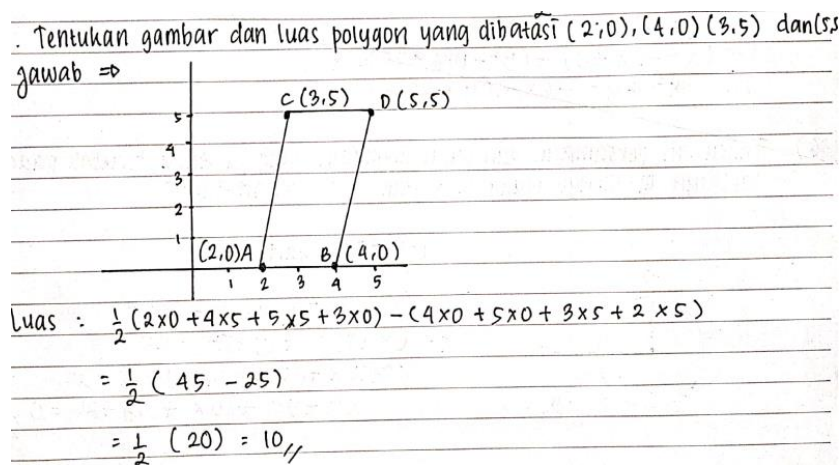 . Tentukan gambar dan luas polygon yang dibatasi (2,0), (4,0) (3.5) dan (5,5
Jawab ⇒
C (3,5) D (5,5)
5
4
3
2
1
(2,0) A B (4,0)
1 2 3 4 5
Luas : 1/2 (2×0 + 4×5 + 5×5 + 3×0) - (4×0 + 5×0 + 3×5 + 2×5)
= 1/2 (45 - 25)
= 1/2 (20) = 10 //